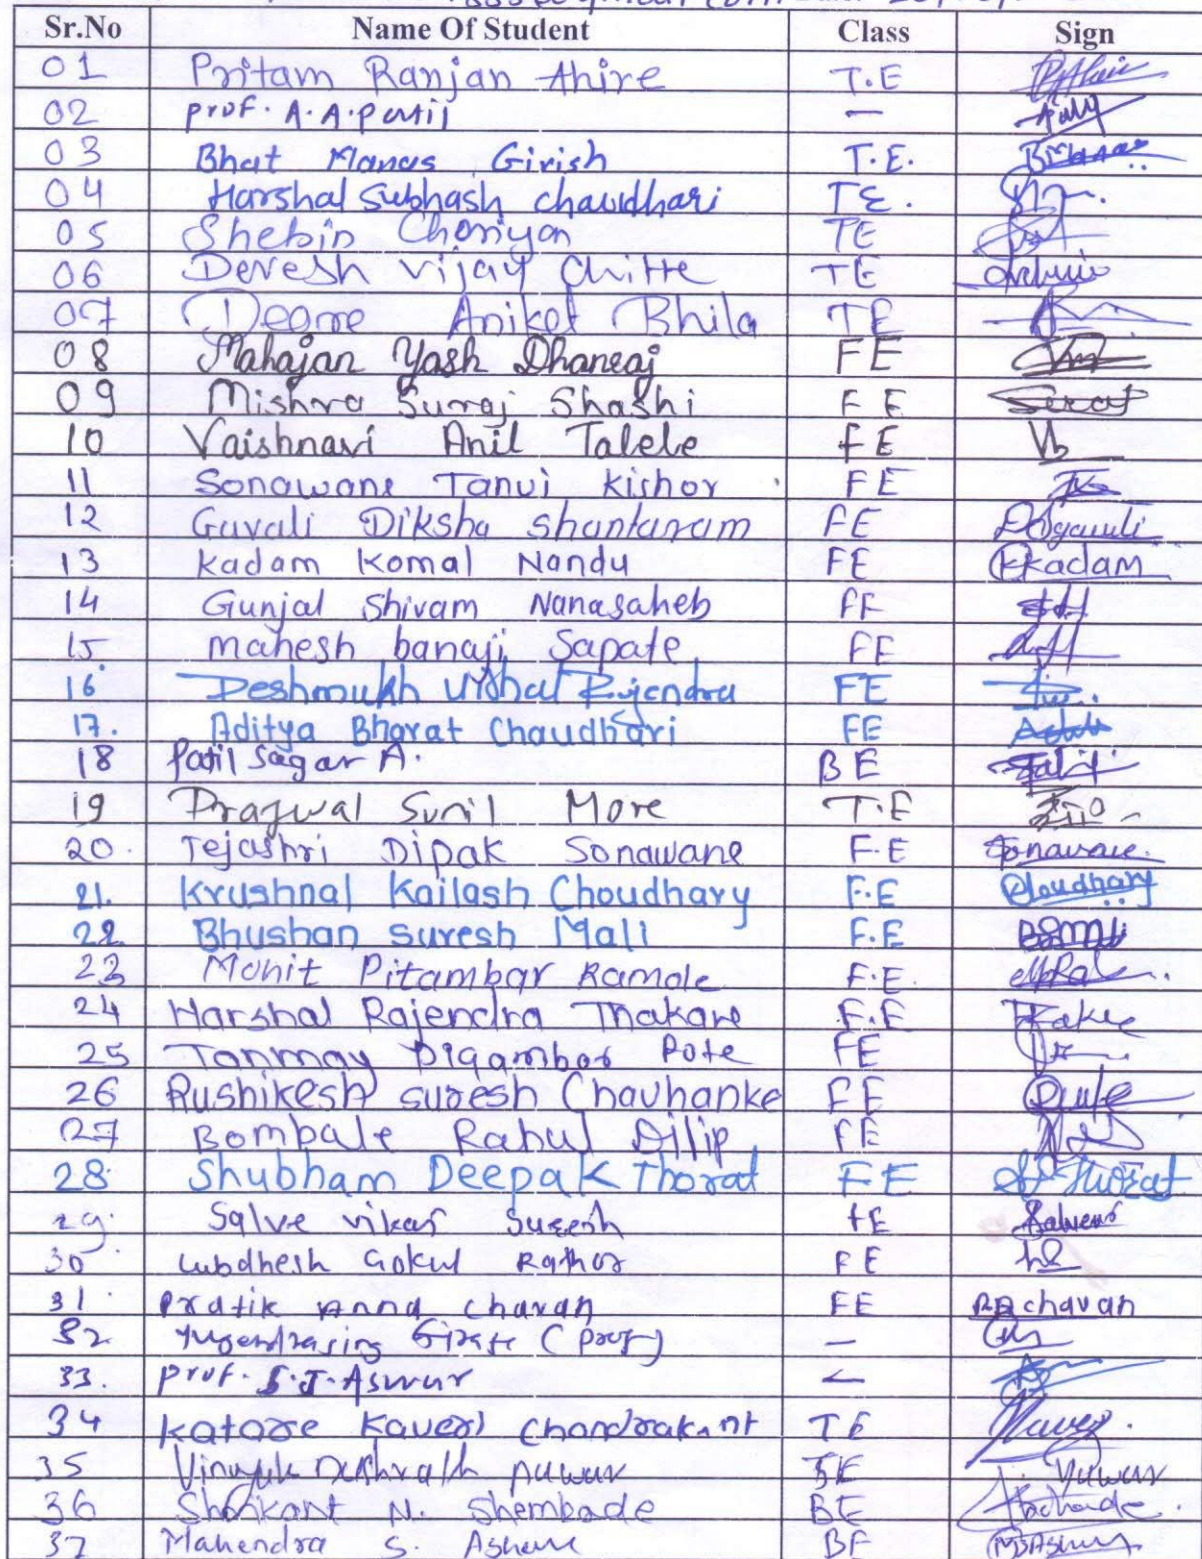 Sr.No Name Of Student Class Sign
01 Pritam Ranjan Ahire T.E
02 prof. A.A.patil —
03 Bhat Manas Girish T.E.
04 Harshal Subhash chaudhari TE.
05 Shebin Cheriyan TE
06 Devesh vijay Chitte TE
07 Deore Aniket Bhila TE
08 Mahajan Yash Dhanraj FE
09 Mishra Suraj Shashi FE
10 Vaishnavi Anil Talele FE
11 Sonawane Tanvi Kishor FE
12 Gavali Diksha shantaram FE
13 kadam Komal Nandu FE Kkadam
14 Gunjal Shivam Nanasaheb FE
15 mahesh banaji Sapate FE
16. Deshmukh Vishal Rajendra FE
17. Aditya Bharat Chaudhari FE
18 Patil Sagar A. BE
19 Prajwal Sunil More T.E
20. Tejashri Dipak Sonawane F.E Sonawane.
21. Krushnal Kailash Choudhary F.E Choudhary
22 Bhushan suresh Mali F.E BSMali
23 Mohit Pitambar Ramole F.E.
24 Harshal Rajendra Thakare F.E
25 Tanmay Digambar Pote FE
26 Rushikesh suresh Chavhanke FE
27 Bombale Rahul Dilip FE
28 Shubham Deepak Thorat FE Thorat
29. Salve vikas Suresh FE
30 Gokul Rathor FE
31. Pratik Anna chavan FE chavan
32 Girase (prof) —
33. prof. S.J.Aswar —
34 Katare Kaveri Chandrakant TE
35 Vinayak Dashrath Pawar BE
36 N. Shembade BE
37 Mahendra S. BE